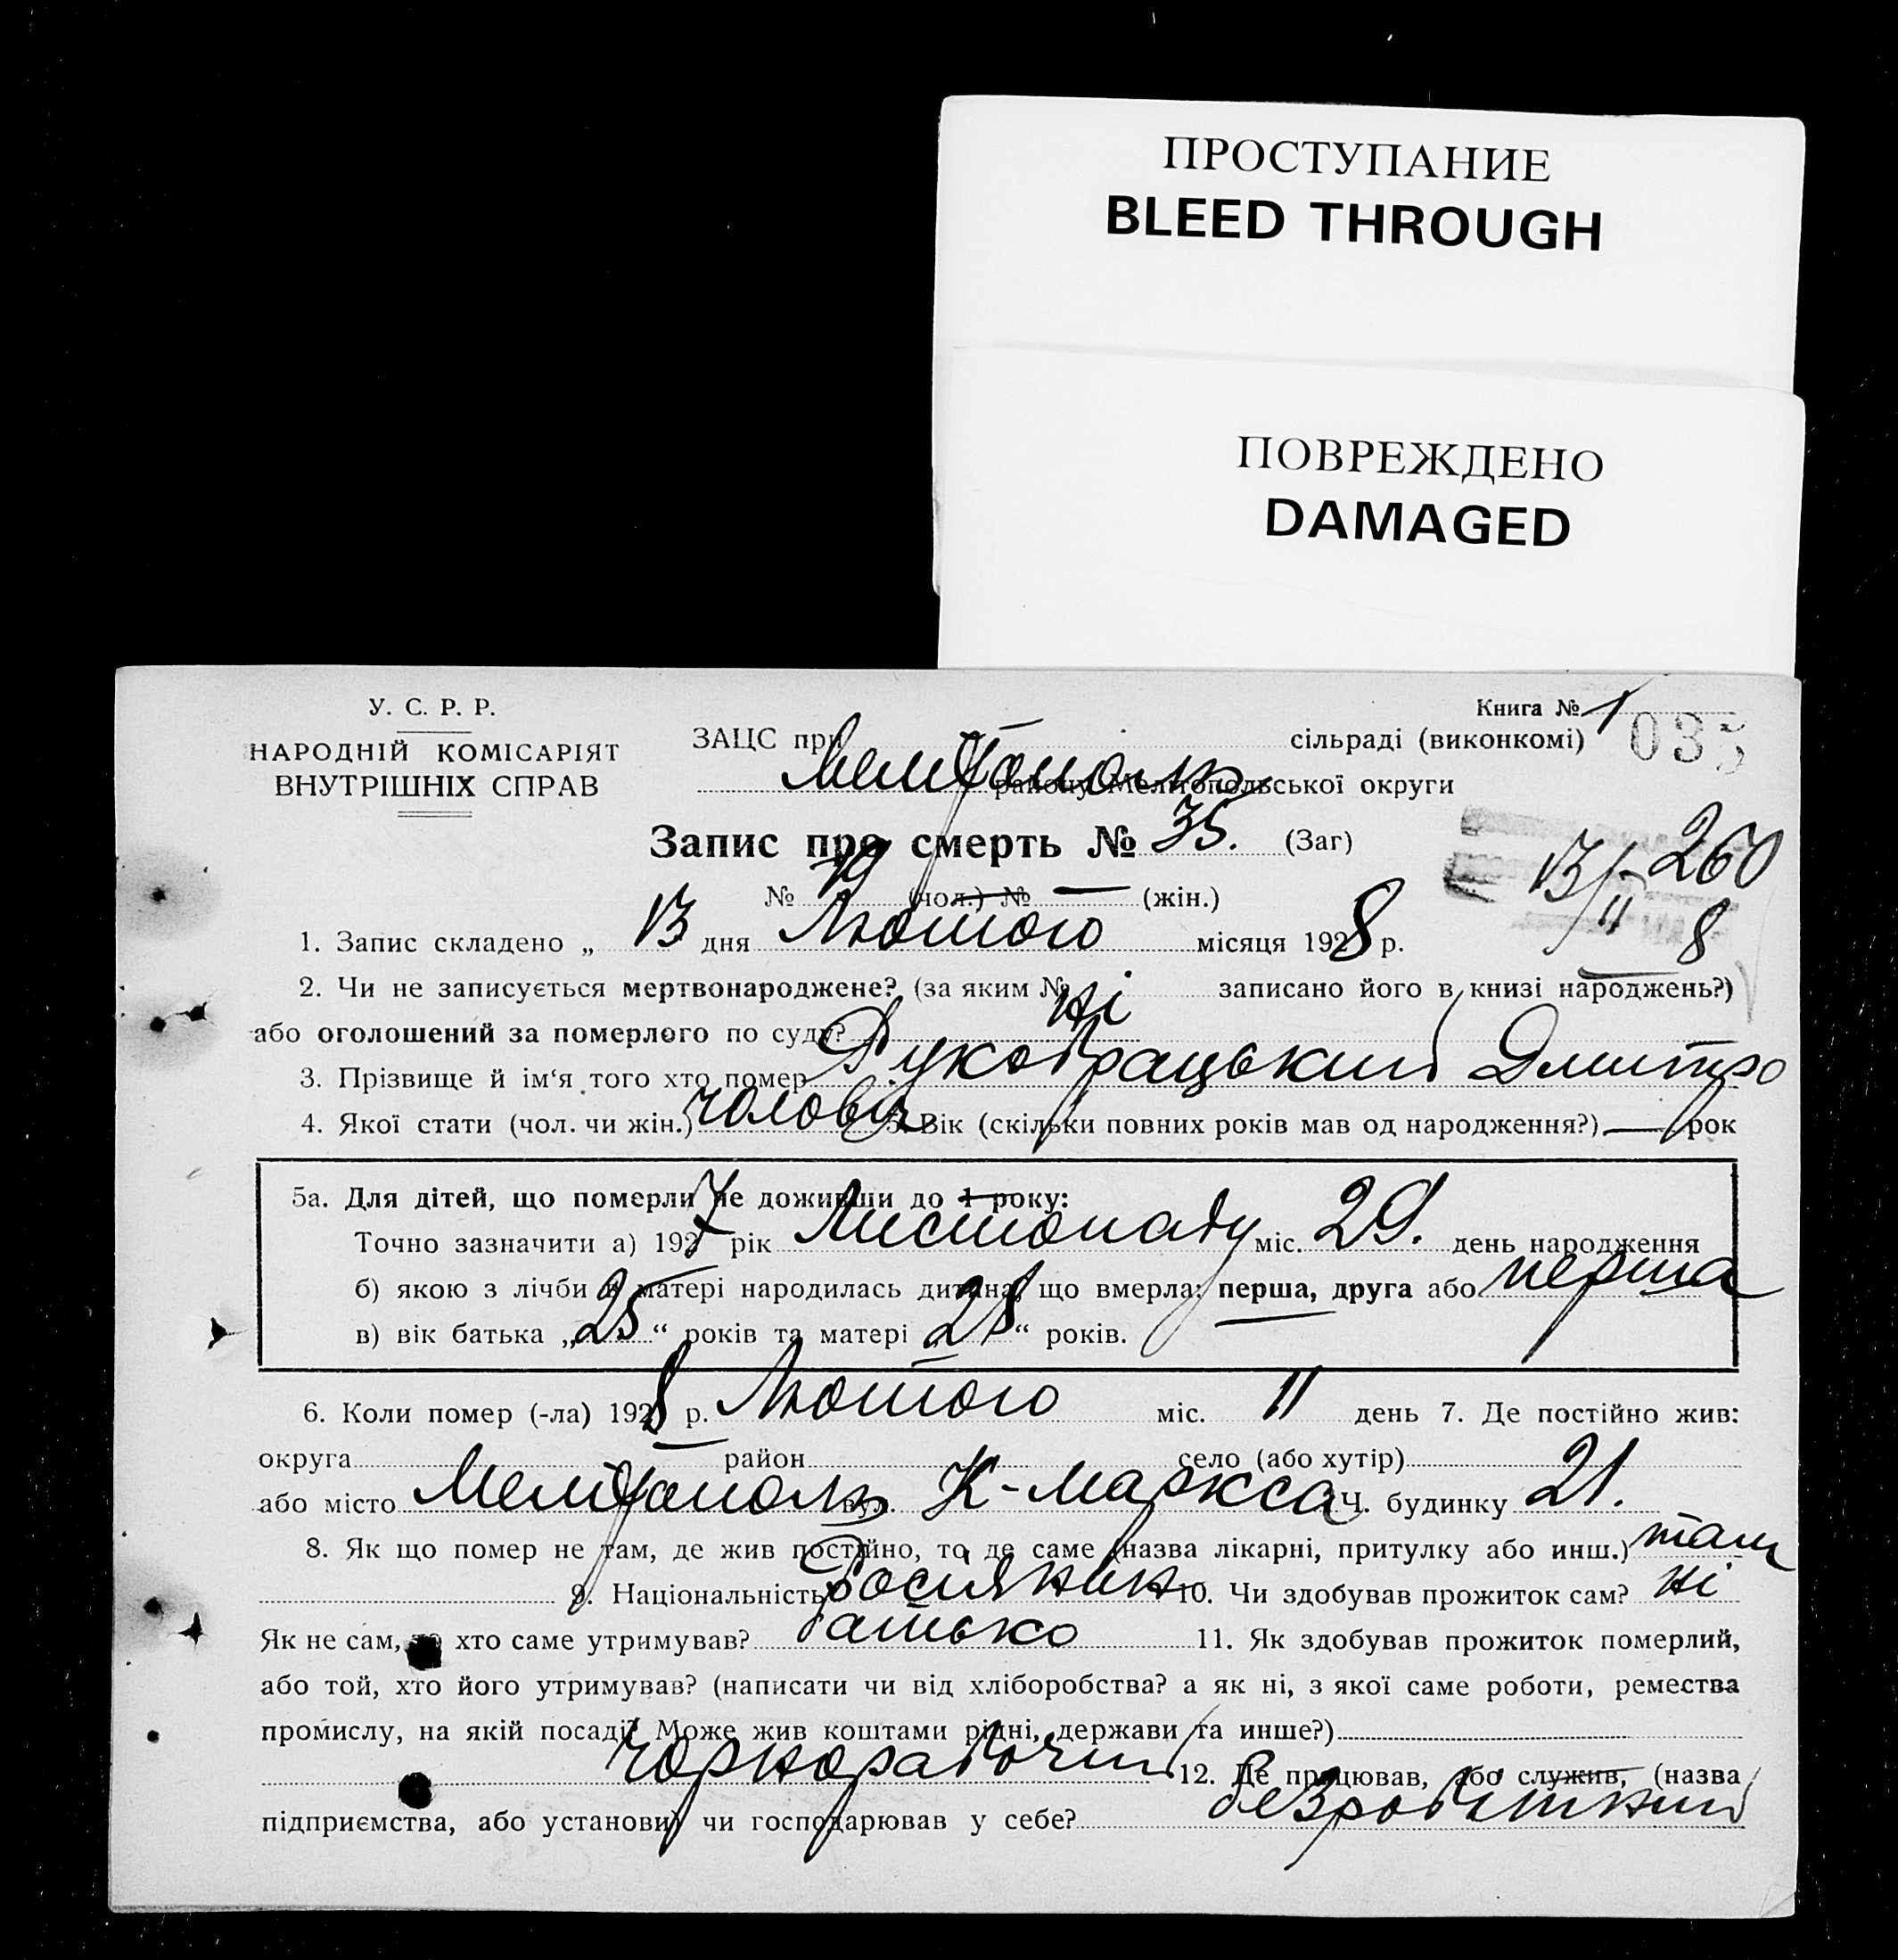 ПРОСТУПАНИЕ
BLEED THROUGH
ПОВРЕЖДЕНО
DAMAGED
У. С. Р. Р.
НАРОДНІЙ КОМІСАРІЯТ
ВНУТРІШНІХ СПРАВ
Книга № 1
035
ЗАЦС при сільраді (виконкомі)
Мелітополь району Мелітопольської округи
Запис про смерть № 35. (Заг)
260
№ 19 (чол.) № — (жін.)
13/II 8
1. Запис складено „ 13 дня Лютого місяця 1928 р.
2. Чи не записується мертвонароджене? (за яким № записано його в книзі народжень?)
або оголошений за померлого по суду? ні
3. Прізвище й ім'я того хто помер Дмитро
4. Якої стати (чол. чи жін.) чоловіч 5. Вік (скільки повних років мав од народження?) — рок
5а. Для дітей, що померли не доживши до 1 року:
Точно зазначити а) 1927 рік Листопаду міс. 29. день народження
б) якою з лічби у матері народилась дитина, що вмерла: перша, друга або перша
в) вік батька „25“ років та матері „28“ років.
6. Коли помер (-ла) 1928 р. Лютого міс. 11 день 7. Де постійно жив:
округа район село (або хутір)
або місто Мелітополь вул. К-Маркса Ч. будинку 21.
8. Як що помер не там, де жив постійно, то де саме (назва лікарні, притулку або инш.) там
9. Національність росіянин 10. Чи здобував прожиток сам? ні
Як не сам, то хто саме утримував? батько 11. Як здобував прожиток померлий,
або той, хто його утримував? (написати чи від хліборобства? а як ні, з якої саме роботи, ремества
промислу, на якій посаді? Може жив коштами рідні, держави та инше?)
чорнорабочий 12. Де працював, або служив, (назва
підприємства, або установи) чи господарював у себе? безробітний